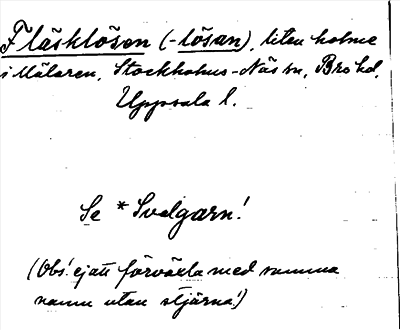 Fläsklösen (-lösan), liten holme
i Mälaren, Stockholms-Näs sn, Bro hd,
Uppsala l.
Se *Svalgarn!
(Obs! ej att förväxla med samma
namn utan stjärna!)